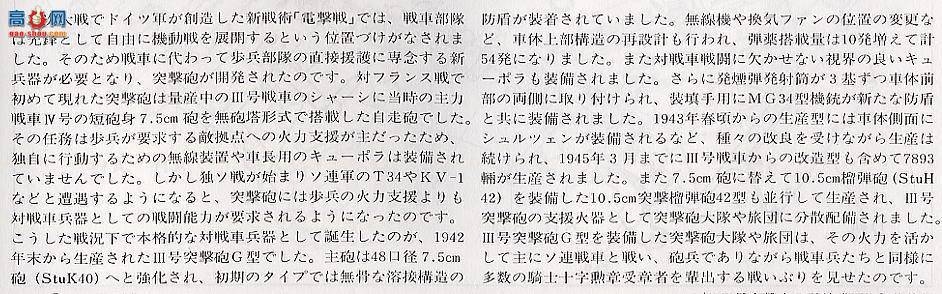 大戦でドイツ軍が創造した新戦術「電撃戦」では、戦車部隊
は先鋒として自由に機動戦を展開するという位置づけがなされま
した。そのため戦車に代わって歩兵部隊の直接援護に専念する新
兵器が必要となり、突撃砲が開発されたのです。対フランス戦で
初めて現れた突撃砲は量産中のIII号戦車のシャーシに当時の主力
戦車IV号の短砲身7.5cm砲を無砲塔形式で搭載した自走砲でした。
その任務は歩兵が要求する敵拠点への火力支援が主だったため、
独自に行動するための無線装置や車長用のキューポラは装備され
ていませんでした。しかし独ソ戦が始まりソ連軍のT34やKV-1
などと遭遇するようになると、突撃砲には歩兵の火力支援よりも
対戦車兵器としての戦闘能力が要求されるようになったのです。
こうした戦況下で本格的な対戦車兵器として誕生したのが、1942
年末から生産されたIII号突撃砲G型でした。主砲は48口径7.5cm
砲(StuK40)へと強化され、初期のタイプでは無骨な溶接構造の
防盾が装着されていました。無線機や換気ファンの位置の変更な
ど、車体上部構造の再設計も行われ、弾薬搭載量は10発増えて計
54発になりました。また対戦車戦闘に欠かせない視界の良いキュ
ーポラも装備されました。さらに発煙弾発射筒が3基ずつ車体前
部の両側に取り付けられ、装填手用にMG34型機銃が新たな防盾
と共に装備されました。1943年春頃からの生産型には車体側面に
シュルツェンが装備されるなど、種々の改良を受けながら生産は
続けられ、1945年3月までにIII号戦車からの改造型も含めて7893
輛が生産されました。また7.5cm砲に替えて10.5cm榴弾砲(StuH
42)を装備した10.5cm突撃榴弾砲42型も並行して生産され、III号
突撃砲の支援火器として突撃砲大隊や旅団に分散配備されました。
III号突撃砲G型を装備した突撃砲大隊や旅団は、その火力を活か
して主にソ連戦車と戦い、砲兵でありながら戦車兵たちと同様に
多数の騎士十字勲章受章者を輩出する戦いぶりを見せたのです。
gao-shou.com